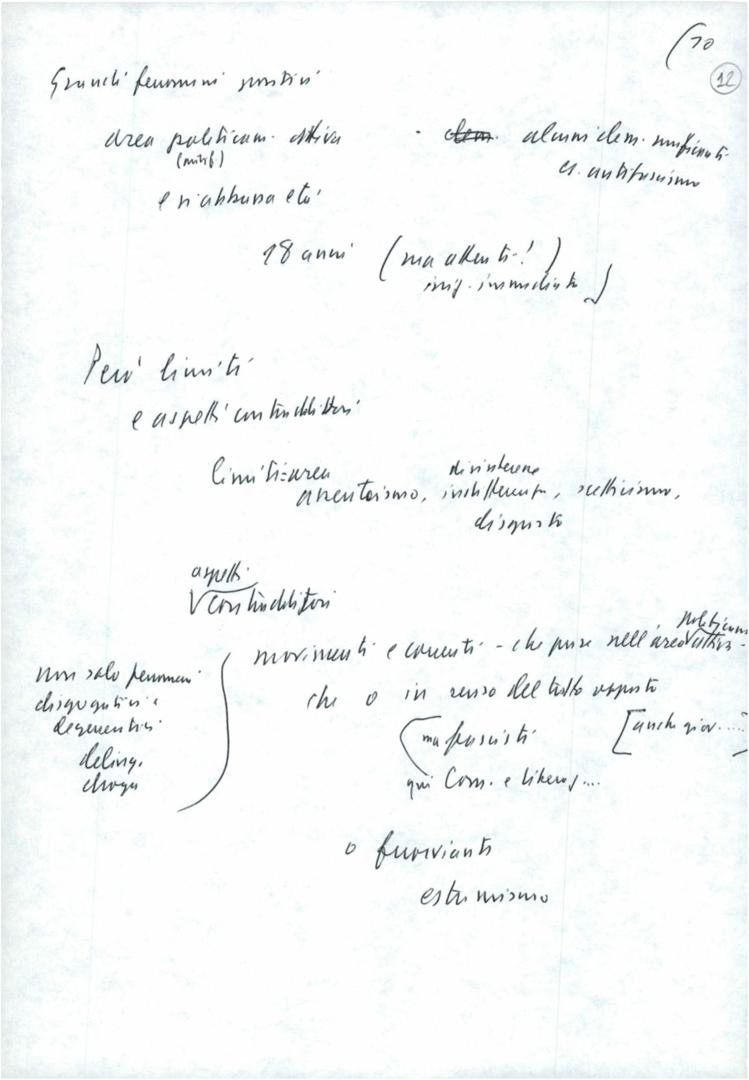 (10
12
Grandi fenomeni positivi
area politicam. attiva
- dem. alcuni elem. unificanti
es. antifascismo
e si abbassa età
18 anni (ma attenti-!)
Però limiti
e aspetti contraddittori
limiti: area
disinteresse
assenteismo, indifferenza, scetticismo,
disgusto
aspetti
contraddittori
politicam
movimenti e correnti - che pure nell'area attiva -
non solo fenomeni
disgregativi e
degenerativi
delinq.
droga
che o in senso del tutto opposto
(ma fascisti
[anche giov....]
qui Com. e
o fuorvianti
estremismo